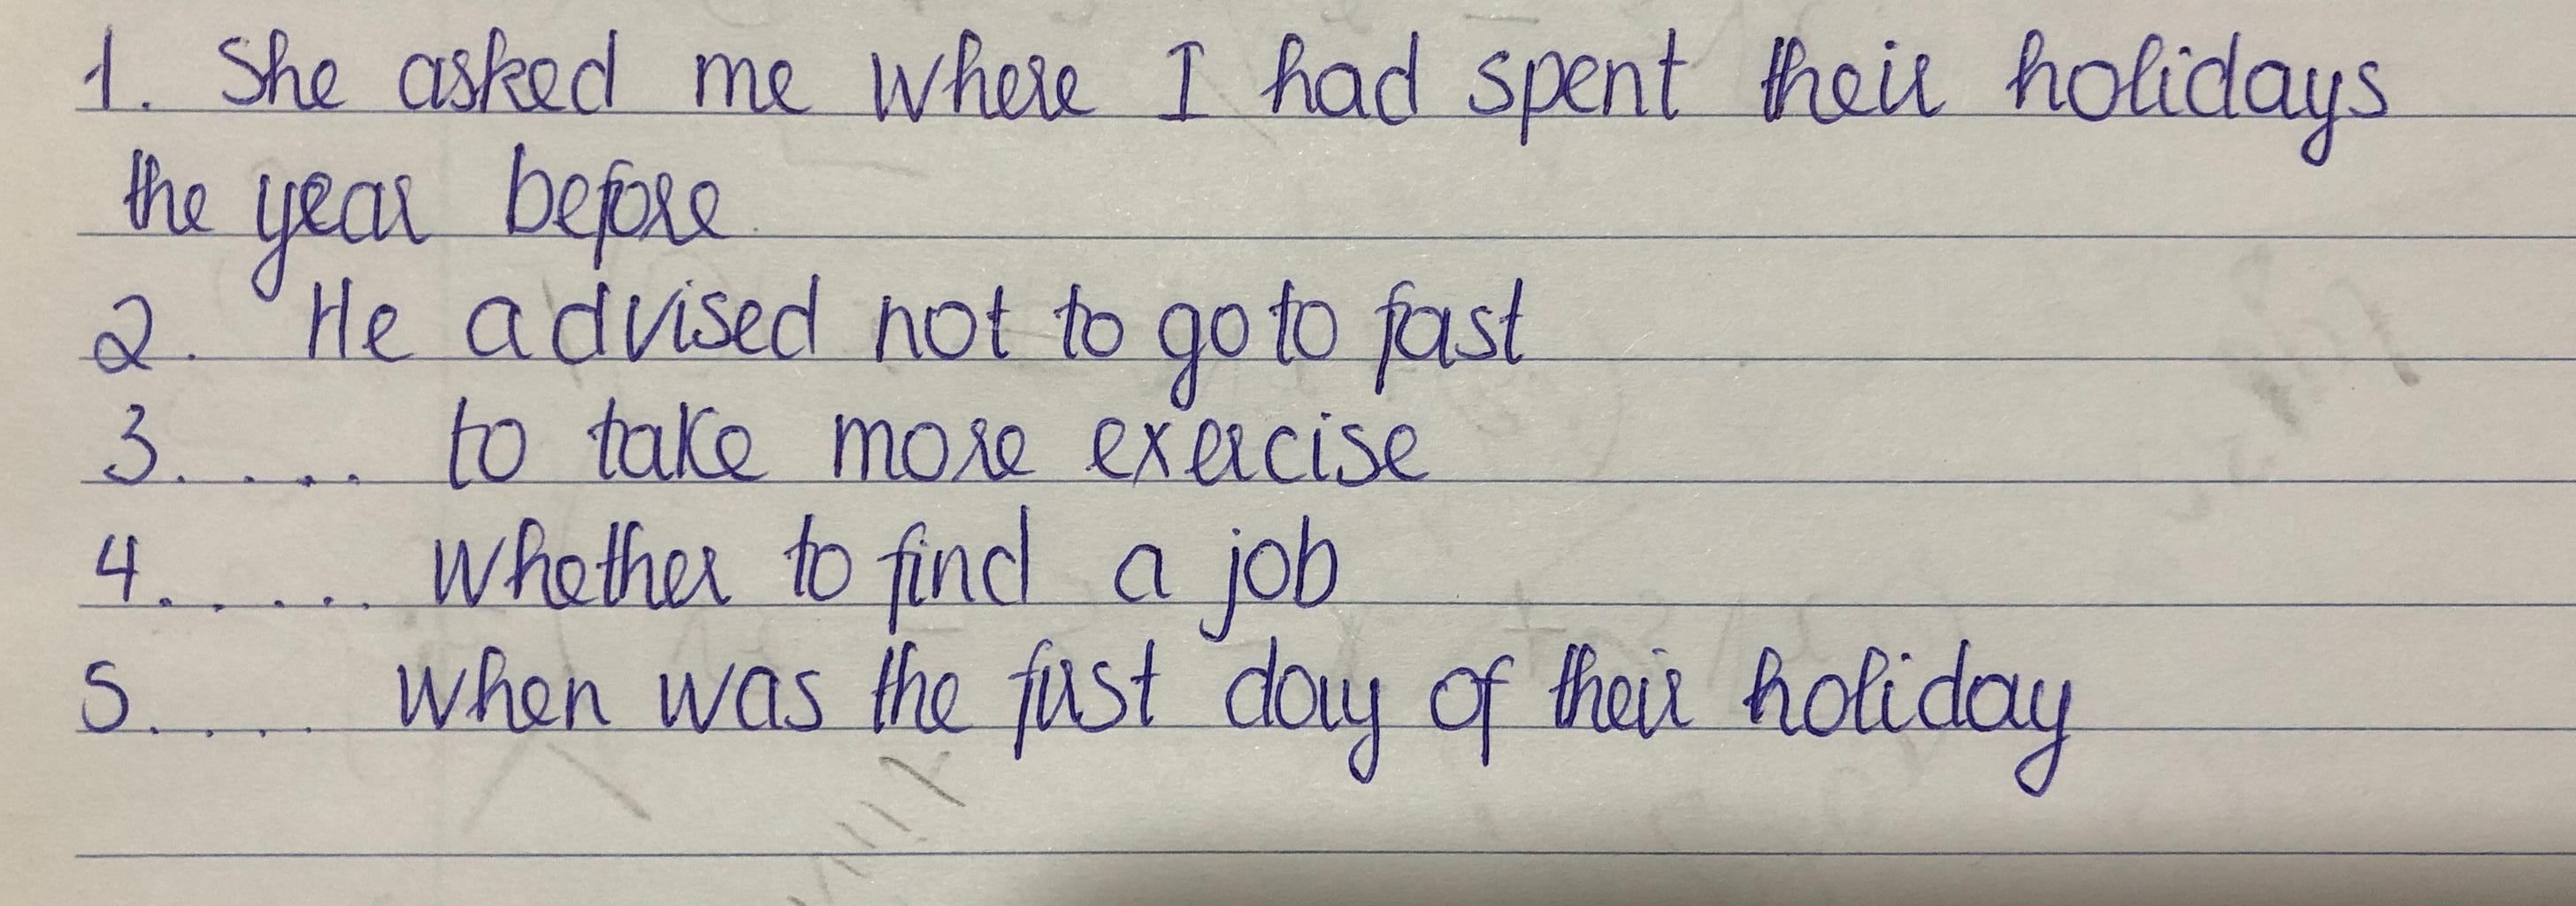 1. She asked me where I had spent their holidays
the year before
2. He advised not to go to fast
3. .... to take more exercise
4. ..... whether to find a job
5. .... when was the first day of their holiday